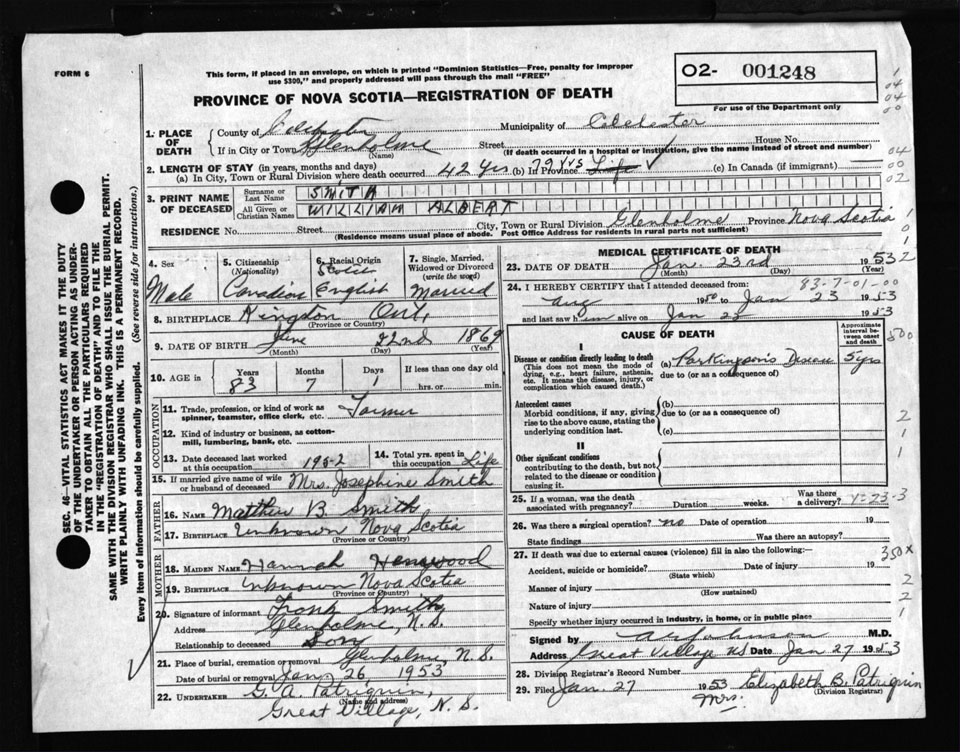 FORM 6
This form, if placed in an envelope, on which is printed "Dominion Statistics—Free, penalty for improper
use $300," and properly addressed will pass through the mail "FREE"
O2- 001248
For use of the Department only
PROVINCE OF NOVA SCOTIA—REGISTRATION OF DEATH
1. PLACE OF DEATH County of Colchester Municipality of Colchester
If in City or Town Glenholme (Name) Street House No.
(If death occurred in a hospital or institution, give the name instead of street and number)
2. LENGTH OF STAY (in years, months and days)
(a) In City, Town or Rural Division where death occurred 42 Yrs (b) In Province 79 Yrs Life ✓ (c) In Canada (if immigrant)
3. PRINT NAME OF DECEASED Surname or Last Name SMITH
All Given or Christian Names WILLIAM ALBERT
RESIDENCE No. Street City, Town or Rural Division Glenholme Province Nova Scotia
(Residence means usual place of abode. Post Office Address for residents in rural parts not sufficient)
4. Sex Male
5. Citizenship (Nationality) Canadian
6. Racial Origin English
7. Single, Married, Widowed or Divorced (write the word) Married
8. BIRTHPLACE Kingston Ont.
(Province or Country)
9. DATE OF BIRTH June (Month) 22nd (Day) 1869 (Year)
10. AGE in Years 83 Months 7 Days 1 If less than one day old hrs. or min.
OCCUPATION
11. Trade, profession, or kind of work as spinner, teamster, office clerk, etc. Farmer
12. Kind of industry or business, as cotton-mill, lumbering, bank, etc.
13. Date deceased last worked at this occupation 1952
14. Total yrs. spent in this occupation Life
15. If married give name of wife or husband of deceased Mrs. Josephine Smith
FATHER
16. NAME Matthew B Smith
17. BIRTHPLACE Unknown Nova Scotia
(Province or Country)
MOTHER
18. MAIDEN NAME Hannah
19. BIRTHPLACE Unknown Nova Scotia
(Province or Country)
20. Signature of informant Frank Smith
Address Glenholme, N.S.
Relationship to deceased Son
21. Place of burial, cremation or removal Glenholme, N.S.
Date of burial or removal Jan, 26, 1953
22. UNDERTAKER G. A. Patriquin,
(Name and address)
Great Village, N. S.
MEDICAL CERTIFICATE OF DEATH
23. DATE OF DEATH Jan. (Month) 23rd (Day) 1953 (Year)
83-7-01-00
24. I HEREBY CERTIFY that I attended deceased from:
Aug 1950 to Jan 23 1953
and last saw him alive on Jan 23 1953
CAUSE OF DEATH
Approximate interval between onset and death
I
Disease or condition directly leading to death
(This does not mean the mode of dying, e.g., heart failure, asthenia, etc. It means the disease, injury, or complication which caused death.)
(a) Parkinson's Disease 5 yrs
due to (or as a consequence of)
Antecedent causes
Morbid conditions, if any, giving rise to the above cause, stating the underlying condition last.
(b)
due to (or as a consequence of)
(c)
II
Other significant conditions
contributing to the death, but not related to the disease or condition causing it.
25. If a woman, was the death associated with pregnancy? Duration weeks. Was there a delivery?
26. Was there a surgical operation? no Date of operation 19
State findings Was there an autopsy?
27. If death was due to external causes (violence) fill in also the following:—
Accident, suicide or homicide? (State which) Date of injury 19
Manner of injury (How sustained)
Nature of injury
Specify whether injury occurred in industry, in home, or in public place
Signed by Johnson M.D.
Address Great Village NS Date Jan 27 1953
28. Division Registrar's Record Number
29. Filed Jan. 27 1953 Mrs. Elizabeth B. Patriquin
(Division Registrar)
SEC. 46—VITAL STATISTICS ACT MAKES IT THE DUTY
OF THE UNDERTAKER OR PERSON ACTING AS UNDER-
TAKER TO OBTAIN ALL THE PARTICULARS REQUIRED
IN THE "REGISTRATION OF DEATH" AND TO FILE THE
SAME WITH THE DIVISION REGISTRAR WHO SHALL ISSUE THE BURIAL PERMIT.
WRITE PLAINLY WITH UNFADING INK. THIS IS A PERMANENT RECORD.
Every item of Information should be carefully supplied. (See reverse side for instructions.)